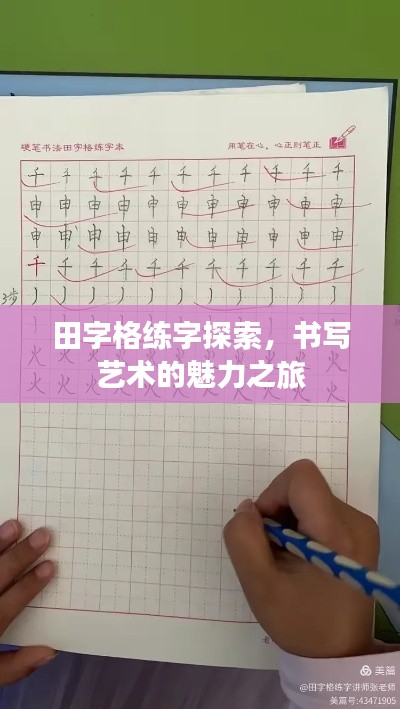 硬笔书法田字格练字本 用笔在心，心正则笔正
千 千 千 千 千 千 千 千 千 千 千
申 申 申 申 申 申 申 申 申 申 申
申 申 申 申 申 申 申 申 申 申 申
千 千 千 千 千 千 千 千 千 千 千
田字格练字探索，书写
艺术的魅力之旅
美篇
@田字格练字讲师张老师
美篇号:43471905